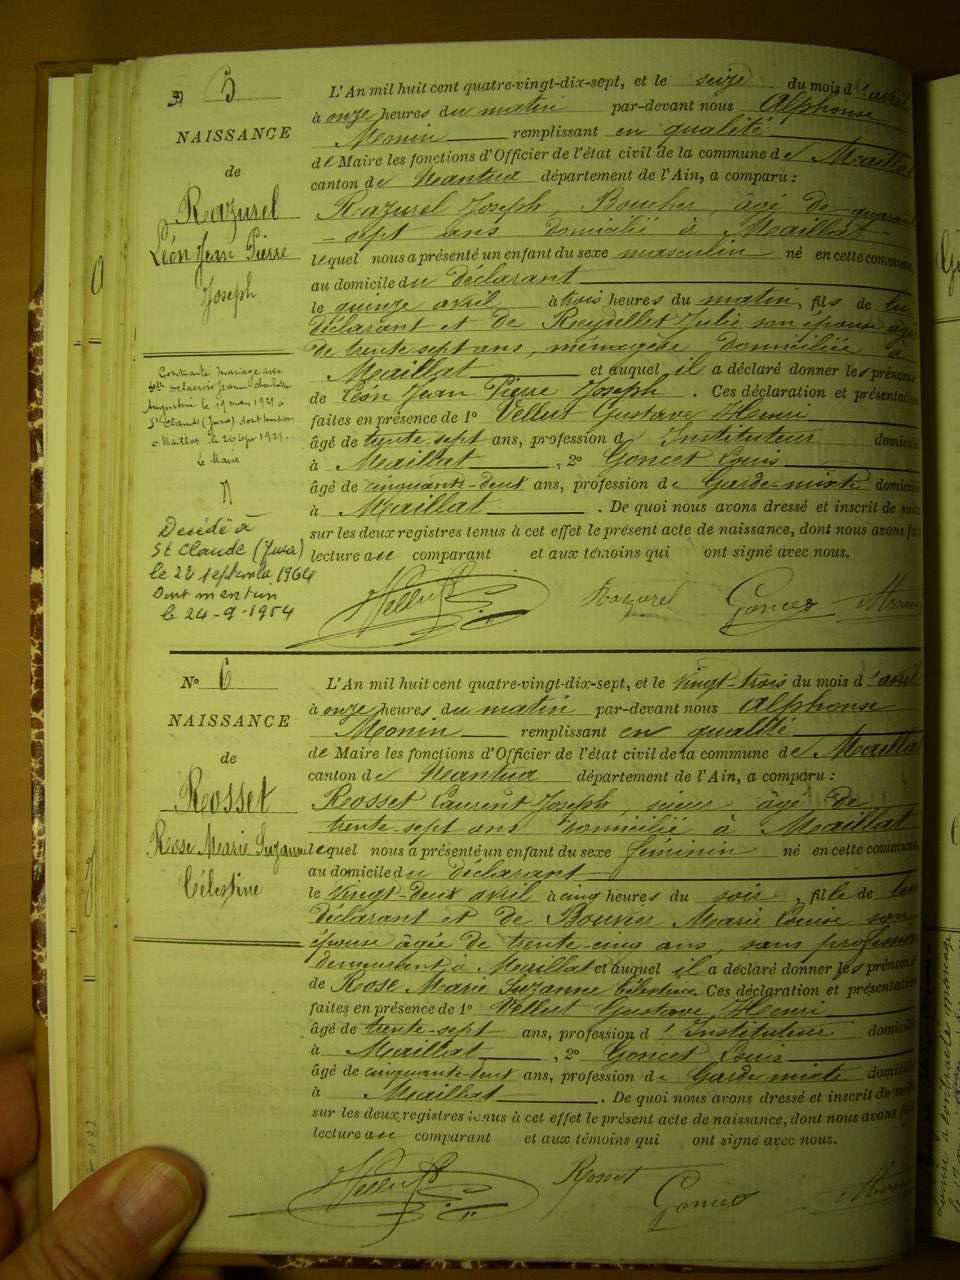 5
NAISSANCE
de
Razurel
Léon Jean Pierre
Joseph
Contracté mariage avec
Augustine le 19 mars 1921 à
St Claude (Jura) dont mention
à Maillat le 26 1921.
Le Maire
Décédé à
St Claude (Jura)
le 22 septembre 1964
Dont mention
le 24-9-1964
L'An mil huit cent quatre-vingt-dix-sept, et le seize du mois d'avril
à onze heures du matin par-devant nous Alphonse
Monin remplissant en qualité
de Maire les fonctions d'Officier de l'état civil de la commune de Maillat
canton de Nantua département de l'Ain, a comparu :
Razurel Joseph, Boucher, âgé de quarante
-sept ans domicilié à Maillat
lequel nous a présenté un enfant du sexe masculin né en cette commune,
au domicile du déclarant
le quinze avril à trois heures du matin, fils de lui
déclarant et de Reydellet Julie son épouse âgée
de trente sept ans, ménagère domiciliée à
Maillat et auquel il a déclaré donner les prénoms
de Léon Jean Pierre Joseph. Ces déclaration et présentation
faites en présence de 1° Velluit Gustave Henri
âgé de trente sept ans, profession d'Instituteur domicilié
à Maillat, 2° Goncet Louis
âgé de cinquante-deux ans, profession de Garde-mixte domicilié
à Maillat. De quoi nous avons dressé et inscrit de suite
sur les deux registres tenus à cet effet le présent acte de naissance, dont nous avons fait
lecture au comparant et aux témoins qui ont signé avec nous.
Velluit Razurel Goncet Monin
N° 6
NAISSANCE
de
Rosset
Rose Marie Suzanne
Célestine
L'An mil huit cent quatre-vingt-dix-sept, et le vingt-trois du mois d'avril
à onze heures du matin par-devant nous Alphonse
Monin remplissant en qualité
de Maire les fonctions d'Officier de l'état civil de la commune de Maillat
canton de Nantua département de l'Ain, a comparu :
Rosset Laurent Joseph, scieur âgé de
trente-sept ans domicilié à Maillat
lequel nous a présenté un enfant du sexe féminin né en cette commune,
au domicile du déclarant
le vingt-deux avril à cinq heures du soir, fille de lui
déclarant et de Bouvier Marie Louise son
épouse âgée de trente-cinq ans, sans profession
demeurant à Maillat et auquel il a déclaré donner les prénoms
de Rose Marie Suzanne Célestine. Ces déclaration et présentation
faites en présence de 1° Velluit Gustave Henri
âgé de trente-sept ans, profession d'Instituteur domicilié
à Maillat, 2° Goncet Louis
âgé de cinquante-deux ans, profession de Garde mixte domicilié
à Maillat. De quoi nous avons dressé et inscrit de suite
sur les deux registres tenus à cet effet le présent acte de naissance, dont nous avons fait
lecture au comparant et aux témoins qui ont signé avec nous.
Velluit Rosset Goncet Monin